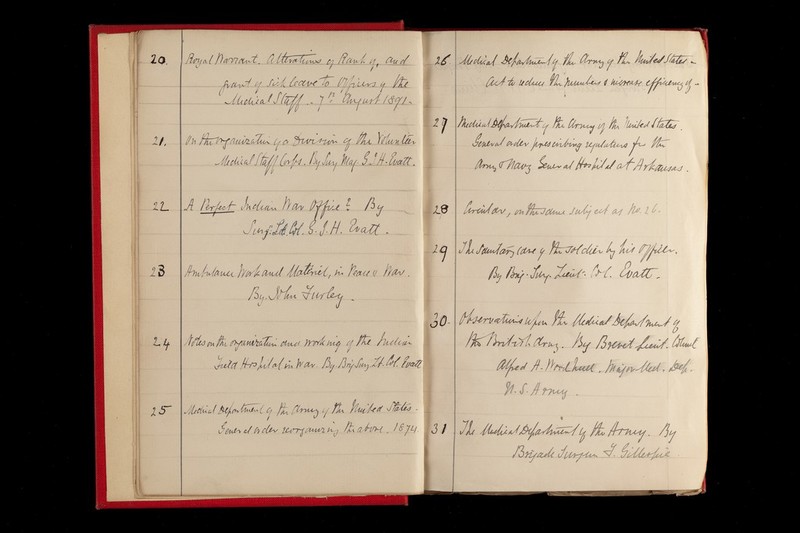 20. Royal Warrant. Alterations of Rank of, and
grant of sick leave to Officers of the
Medical Staff - 7th August 1891.
21. On the organization of a Division of the Volunteer
Medical Staff Corps. By Surg. Maj. G. J. H. Evatt.
22 A Perfect Indian War Office? By
Surg. Lt. Col. G. J. H. Evatt.
23 Ambulance Work and Matériel, in Peace & War.
By. John Furley.
24 Notes on the organization and working of the Indian
Field Hospital in War. By. Brig. Surg. Lt. Col. Evatt
25 Medical Department of the Army of the United States.
General order reorganizing the above. 1874.
26 Medical Department of the Army of the United States -
Act to reduce the numbers & increase efficiency of -
27 Medical Department of the Army of the United States.
General order prescribing regulations for the
Army & Navy General Hospital at Arkansas.
28 Circular, on the same subject as No. 26.
29 The Sanitary care of the soldier by his Officer.
By Brig. Surg. Lieut. Col. Evatt -
30. Observations upon the Medical Department of
the British Army. By Brevet Lieut. Colonel
Alfred A. Woodhull. Major Med. Dep.
U. S. Army -
31 The Medical Department of the Army. By
Brigade Surgeon F. Gillespie